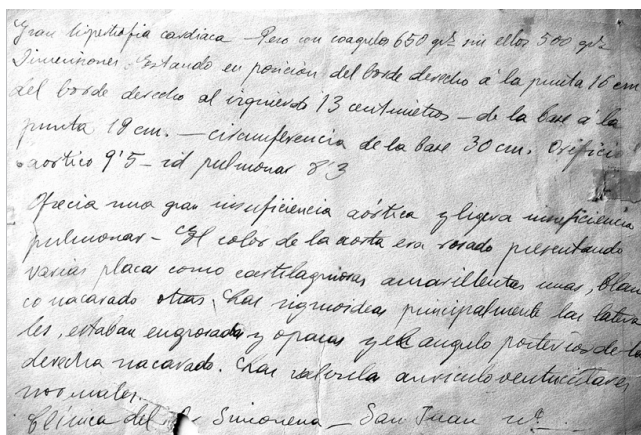 Gran hipertrofia cardiaca — Peso con coagulos 650 grs sin ellos 500 grs
Dimensiones. Estando en posición del borde derecho á la punta 16 cm
del borde derecho al izquierdo 13 centimetros — de la base á la
punta 19 cm. — circumferencia de la base 30 cm. Orificio
aortico 9'5 — id pulmonar 8'3
Ofrecia una gran insuficiencia aórtica y ligera insuficiencia
pulmonar — El color de la aorta era rosado presentando
varias placas como cartilaginosas amarillentas unas, blan
co nacarado otras. Las sigmoideas principalmente las latera
les, estaban engrosadas y opacas y el angelo posterior de la
derecha nacarado. Las valvula auriculoventriculares
normales.
Clínica del Simonena — San Juan